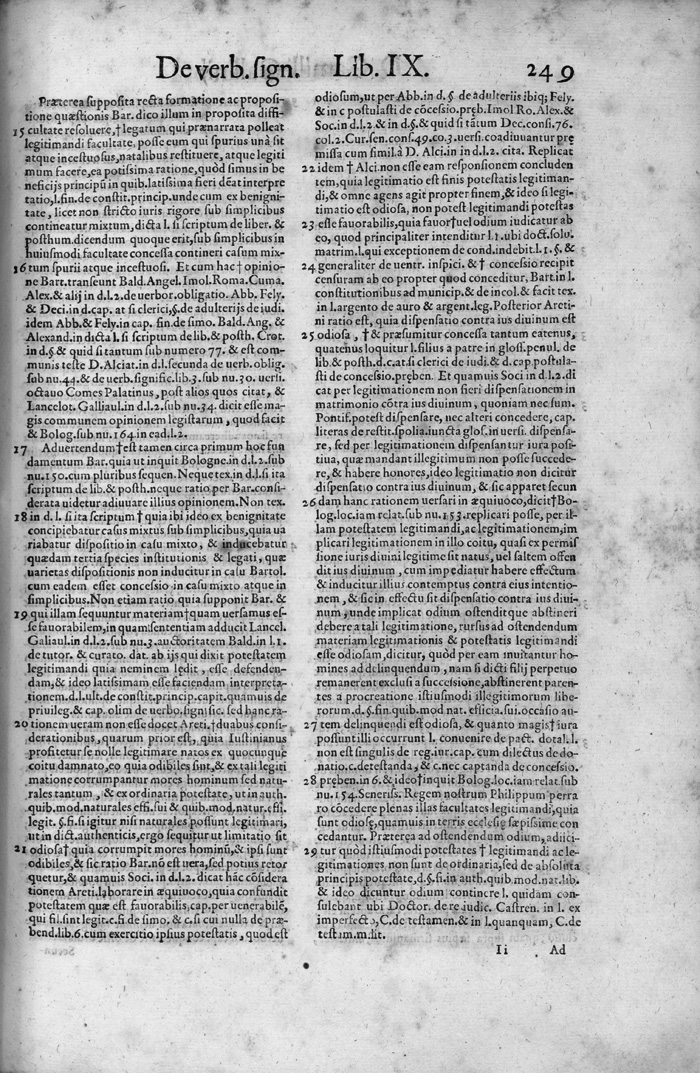 De verb. sign. Lib. IX. 249
Præterea supposita recta formatione ac proposi-
tione quæstionis Bar. dico illum in proposita diffi-
15 cultate resoluere, † legatum qui prænarrata polleat
legitimandi facultate, posse eum qui spurius unà sit
atque incestuosus, natalibus restituere, atque legiti
mum facere, ea potissima ratione, quòd simus in be
neficijs principũ in quib. latissima fieri dèat interpre
tatio, l. fin. de constit. princip. unde cum ex benigni-
tate, licet non stricto iuris rigore sub simplicibus
contineatur mixtum, dicta l. si scriptum de liber. &
posthum. dicendum quoque erit, sub simplicibus in
huiusmodi facultate concessa contineri casum mix-
16 tum spurii atque incestuosi. Et cum hac † opinio-
ne Bart. transeunt Bald. Angel. Imol. Roma. Cuma.
Alex. & alij in d. l. 2. de uerbor. obligatio. Abb. Fely.
& Deci. in d. cap. at si clerici, §. de adulterijs de iudi.
idem Abb. & Fely. in cap. fin. de simo. Bald. Ang. &
Alexand. in dicta l. si scriptum de lib. & posth. Crot.
in d. § & quid si tantum sub numero 77. & est com-
munis teste D. Alciat. in d. l. secunda de uerb. oblig.
sub nu. 44. & de uerb. signific. lib. 3. sub nu. 30. uersi.
octauo Comes Palatinus, post alios quos citat, &
Lancelot. Galliaul. in d. l. 2. sub nu. 34. dicit esse ma-
gis communem opinionem legistarum, quod facit
& Bolog. sub nu. 164. in ead. l. 2.
17 Aduertendum † est tamen circa primum hoc fun
damentum Bar. quia ut inquit Bologne. in d. l. 2. sub
nu. 150. cum pluribus sequen. Neque tex. in d. l. si ita
scriptum de lib. & posth. neque ratio per Bar. consi-
derata uidetur adiuuare illius opinionem. Non tex.
18 in d. l. si ita scriptum † quia ibi ideo ex benignitate
concipiebatur casus mixtus sub simplicibus, quia ua
riabatur dispositio in casu mixto, & inducebatur
quædam tertia species institutionis & legati, quæ
uarietas dispositionis non inducitur in casu Bartol.
cum eadem esset concessio in casu mixto atque in
simplicibus. Non etiam ratio quia supponit Bar. &
19 qui illam sequuntur materiam † quam uersamus es-
se fauorabilem, in quam sententiam adducit Lancel.
Galiaul. in d. l. 2. sub nu. 3. auctoritatem Bald. in l. 1.
de tutor. & curato. dat. ab ijs qui dixit potestatem
legitimandi quia neminem lędit, esse defenden-
dam, & ideo latissimam esse faciendam interpreta-
tionem. d. l. ult. de constit. princip. capit. quamuis de
priuileg. & cap. olim de uerbo. signific. sed hanc ra-
20 tionem ueram non esse docet Areti. † duabus consi-
derationibus, quarum prior est, quia Iustinianus
profitetur se nolle legitimare natos ex quocunque
coitu damnato, eo quia odibiles sint, & ex tali legiti
matione corrumpantur mores hominum sed natu-
rales tantum, & ex ordinaria potestate, ut in auth.
quib. mod. naturales effi. sui & quib. mod. natur. effi.
legit. §. fi. si igitur nisi naturales possunt legitimari,
ut in dict. authenticis, ergo sequitur ut limitatio sit
21 odiosa † quia corrumpit mores hominũ, & ipsi sunt
odibiles, & sic ratio Bar. nõ est uera, sed potius retor
quetur, & quamuis Soci. in d. l. 2. dicat hãc cõsidera
tionem Areti. laborare in æquiuoco, quia confundit
potestatem quæ est fauorabilis, cap. per uenerabilẽ,
qui fil. sint legit. c. fi. de simo. & c. si cui nulla de præ-
bend. lib. 6. cum exercitio ipsius potestatis, quod est
odiosum, ut per Abb. in d. § de adulteriis ibiq; Fely.
& in c postulasti de cõcessio. pręb. Imol Ro. Alex. &
Soc. in d. l. 2. & in d. §. & quid si tãtum Dec. consi. 76.
col. 2. Cur. sen. cons. 49. co. 3. uersi. coadiuuantur prę
missa cum simil. à D. Alci. in d. l. 2. cita. Replicat
22 idem † Alci. non esse eam responsionem concluden
tem, quia legitimatio est finis potestatis legitiman-
di, & omne agens agit propter finem, & ideo si legi-
timatio est odiosa, non potest legitimandi potestas
23 esse fauorabilis, quia fauor † uel odium iudicatur ab
eo, quod principaliter intenditur l. 1. ubi doct. solu.
matrim. l. qui exceptionem de cond. indebit. l. 1. §. &
24 generaliter de uentr. inspici. & † concessio recipit
censuram ab eo propter quod conceditur, Bart. in l.
constitutionibus ad municip. & de incol. & facit tex.
in l. argento de auro & argent. leg. Posterior Areti-
ni ratio est, quia dispensatio contra ius diuinum est
25 odiosa, † & præsumitur concessa tantum eatenus,
quatenus loquitur l. filius a patre in gloss. penul. de
lib. & posth. d. c. at si clerici de iudi. & d. cap. postula-
sti de concessio. pręben. Et quamuis Soci in d. l. 2. di
cat per legitimationem non fieri dispensationem in
matrimonio cõtra ius diuinum, quoniam nec sum.
Pontif. potest dispensare, nec alteri concedere, cap.
literas de restit. spolia. iuncta glos. in uersi. dispensa-
re, sed per legitimationem dispensantur iura posi-
tiua, que mandant illegitimum non posse succede-
re, & habere honores, ideo legitimatio non dicitur
dispensatio contra ius diuinum, & sic apparet secun
26 dam hanc rationem uersari in æquiuoco, dicit † Bo-
log. loc. iam relat. sub nu. 153. replicari posse, per il-
lam potestatem legitimandi, ac legitimationem, im
plicari legitimationem in illo coitu, quasi ex permis
sione iuris diuini legitime sit natus, uel saltem offen
dit ius diuinum, cum impediatur habere effectum
& inducitur illius contemptus contra eius intentio-
nem, & sic in effectu sit dispensatio contra ius diui-
num, unde implicat odium ostenditque abstineri
debere a tali legitimatione, rursus ad ostendendum
materiam legitimationis & potestatis legitimandi
esse odiosam, dicitur, quòd per eam inuitantur ho-
mines ad delinquendum, nam si dicti filij perpetuo
remanerent exclusi a successione, abstinerent paren-
tes a procreatione istiusmodi illegitimorum libe-
rorum. d. §. fin. quib. mod nat. efficia. sui. occasio au-
27 tem delinquendi est odiosa, & quanto magis † iura
possunt illi occurrunt l. conuenire de pact. dotal. l.
non est singulis de reg. iur. cap. cum dilectus de do-
natio. c. detestanda, & c. nec captanda de concessio.
28 pręben. in 6. & ideo † inquit Bolog. loc. iam relat. sub
nu. 154. Seneriss. Regem nostrum Philippum perra
ro cõcedere plenas illas facultates legitimandi, quia
sunt odiosę, quamuis in terris ecclesię sæpissime con
cedantur. Præterea ad ostendendum odium, adiici-
29 tur quòd istiusmodi potestates † legitimandi ac le-
gitimationes non sunt de ordinaria, sed de absoluta
principis potestate, d. §. si. in auth. quib. mod nat. lib.
& ideo dicuntur odium continere l. quidam con-
sulebant ubi Doctor. de re iudic. Castren. in l. ex
imperfecto, C. de testamen. & in l. quanquam, C. de
testim. m. lit.
Ii Ad